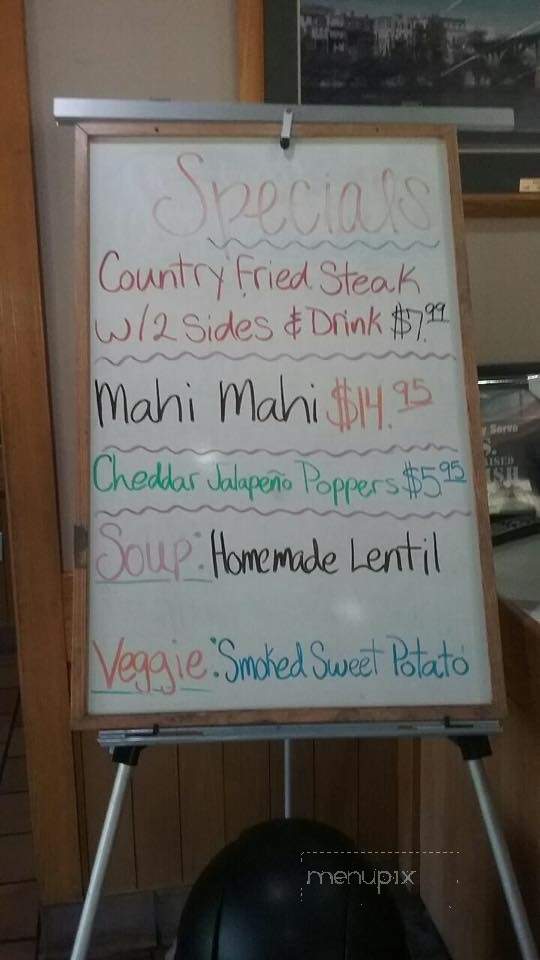 Specials
Country Fried Steak
w/2 Sides & Drink $7.99
Mahi Mahi $14.95
Cheddar Jalapeño Poppers $5.95
Soup: Homemade Lentil
Veggie: Smoked Sweet Potato
Serve
menupix